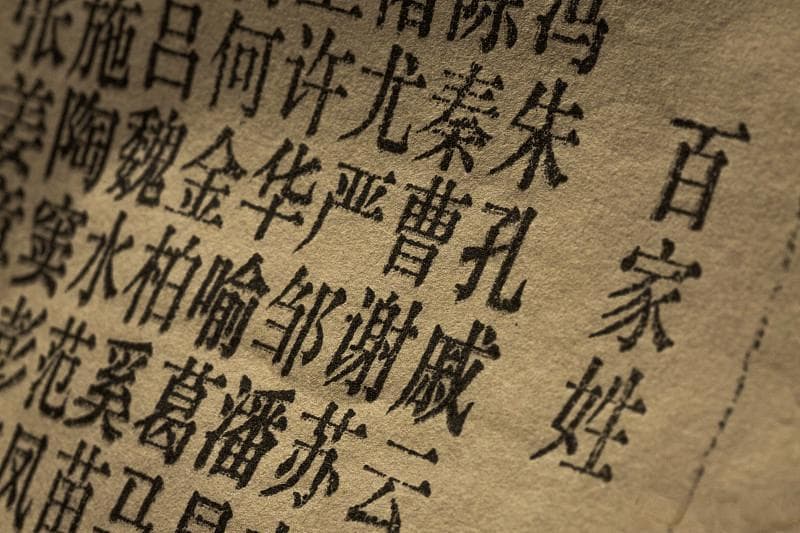 百家姓
冯陈褚卫
朱秦尤许何吕施张
孔曹严华金魏陶姜
戚谢邹喻柏水窦章
云苏潘葛奚范彭
昌马苗凤